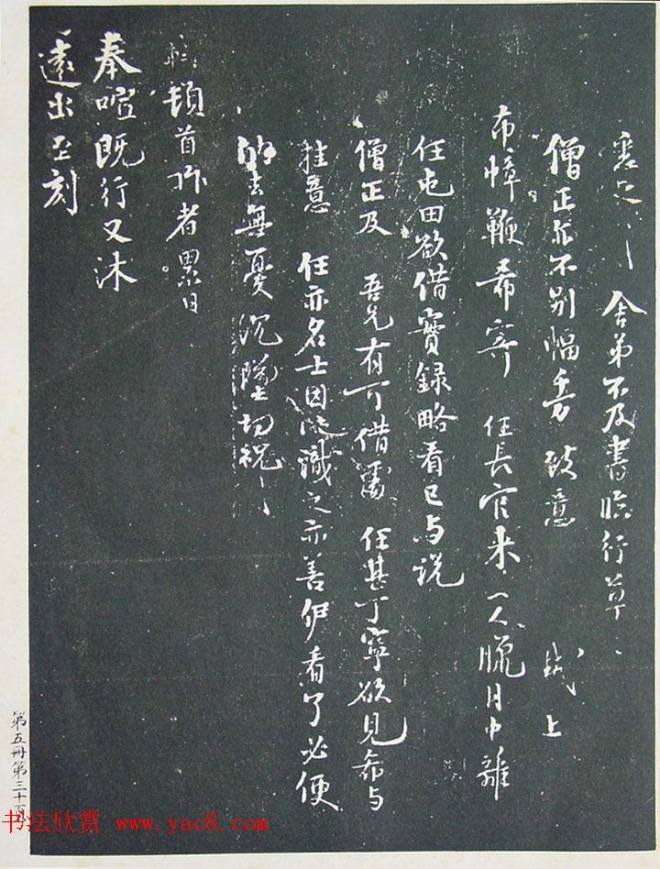 舍弟不及書臨行草〻
僧正 不別幅 致意 軾上
布幛鞭希寄 任長官来 一人臘月中離
任屯田欲借實錄略看已与說
僧正及 吾兄有可借處 任甚丁寧欲見希与
挂意 任亦名士因 識之亦善伊看了必便
附去無憂沉墜切祝〻
軾頓首 者累日
奉喧既行又沐
遠出至刻
第五冊第三十頁
书法欣赏 www.yac8.com